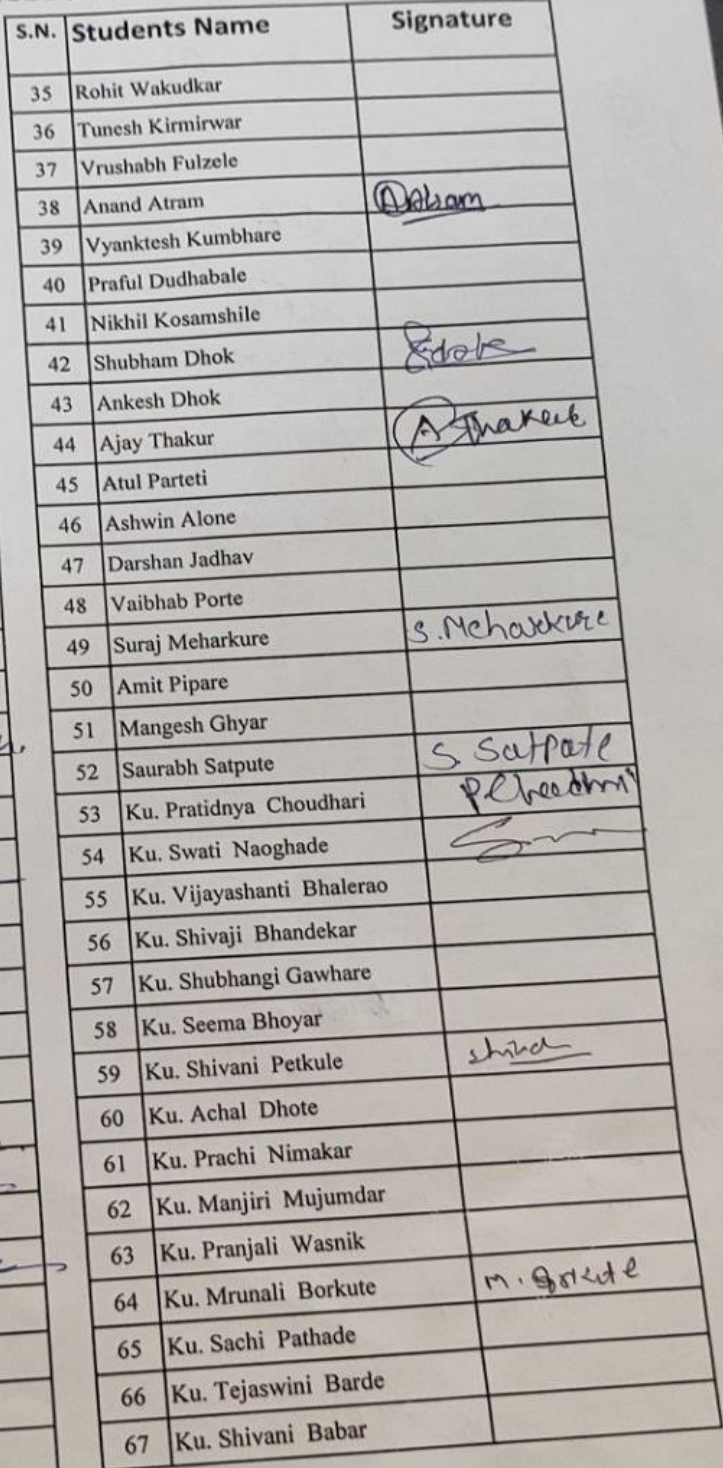 S.N. Students Name Signature
35 Rohit Wakudkar
36 Tunesh Kirmirwar
37 Vrushabh Fulzele
38 Anand Atram
39 Vyanktesh Kumbhare
40 Praful Dudhabale
41 Nikhil Kosamshile
42 Shubham Dhok
43 Ankesh Dhok
44 Ajay Thakur A Thakur
45 Atul Parteti
46 Ashwin Alone
47 Darshan Jadhav
48 Vaibhab Porte
49 Suraj Meharkure S. Meharkure
50 Amit Pipare
51 Mangesh Ghyar
52 Saurabh Satpute S. Satpate
53 Ku. Pratidnya Choudhari
54 Ku. Swati Naoghade
55 Ku. Vijayashanti Bhalerao
56 Ku. Shivaji Bhandekar
57 Ku. Shubhangi Gawhare
58 Ku. Seema Bhoyar
59 Ku. Shivani Petkule
60 Ku. Achal Dhote
61 Ku. Prachi Nimakar
62 Ku. Manjiri Mujumdar
63 Ku. Pranjali Wasnik
64 Ku. Mrunali Borkute M. Borkute
65 Ku. Sachi Pathade
66 Ku. Tejaswini Barde
67 Ku. Shivani Babar